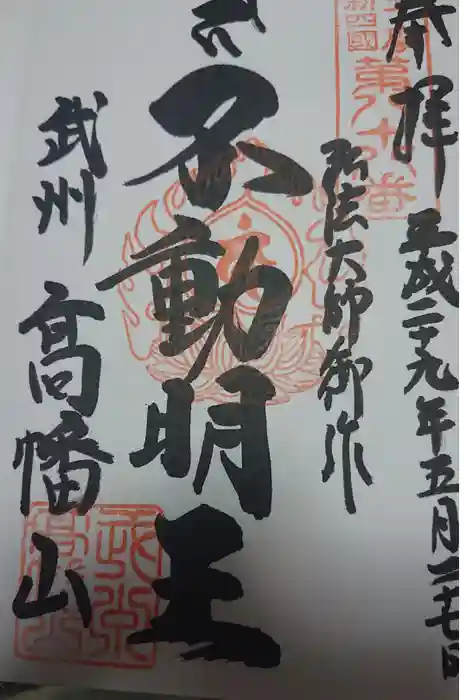 奉拝 平成二十九年五月二十七日
新四國
第八十八番
弘法大師御作
不動明王
武州 高幡山